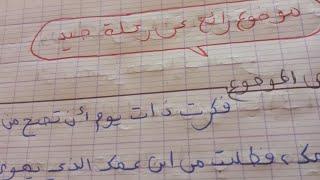 موضوع رائع عن رحلة صيد
الموضوع
فكرت ذات يوم أن تصبح من
فطلبت من ابن عمك الذي يهوى